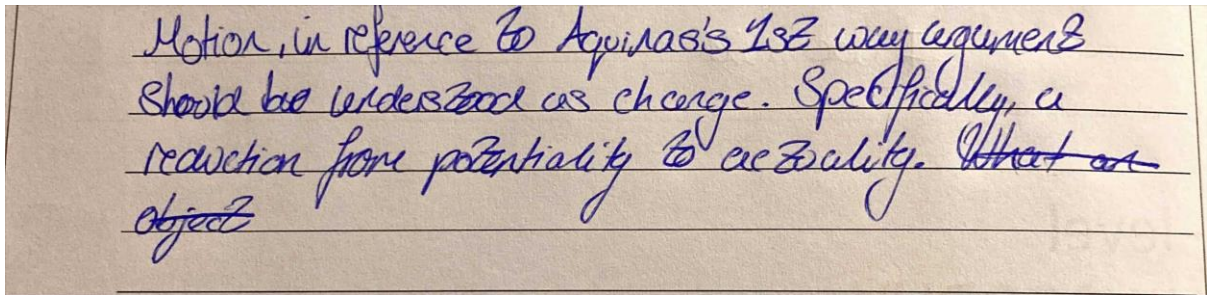 Motion, in reference to Aquinas's 1st way argument
should be understood as change. Specifically, a
reduction from potentiality to actuality. What an
object
level